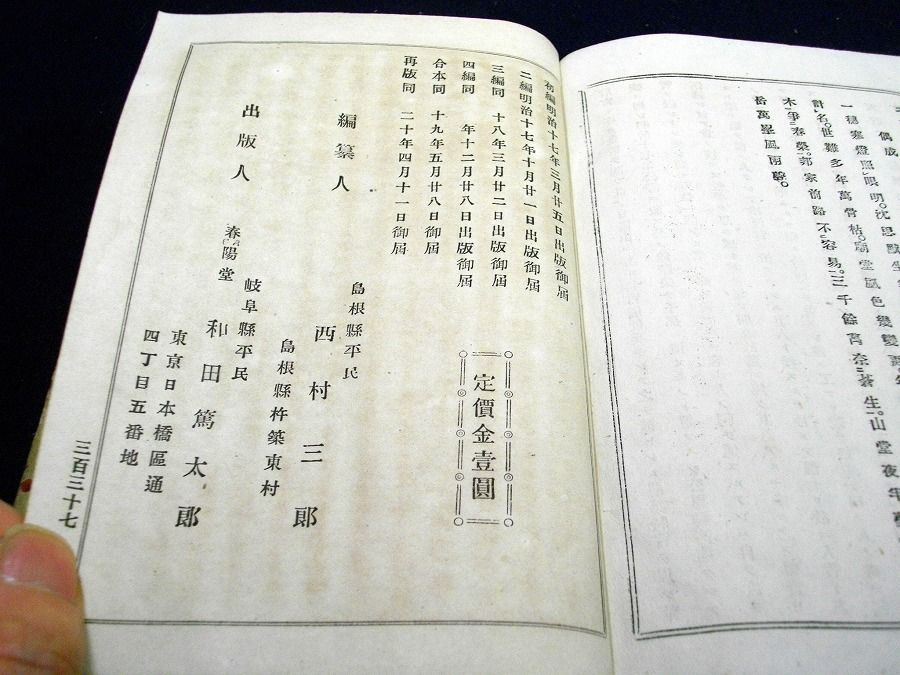 偶成
一穗寒燈照眼明。沈思默坐
計名。世難多年萬骨枯。廟堂風色幾變
木爭春榮。邦家前路不容易。三千餘萬奈蒼生。山堂夜半夢
岳萬壑風雨聲。
初編明治十七年三月廿五日出版御屆
二編明治十七年十月廿一日出版御屆
三編同 十八年三月廿二日出版御屆
四編同 年十二月廿八日出版御屆
合本同 十九年五月廿八日御屆
再版同 二十年四月十一日御屆
定價金壹圓
島根縣平民
編纂人 西村三郎
島根縣杵築東村
岐阜縣平民
出版人 春陽堂 和田篤太郎
東京日本橋區通
四丁目五番地
三百三十七